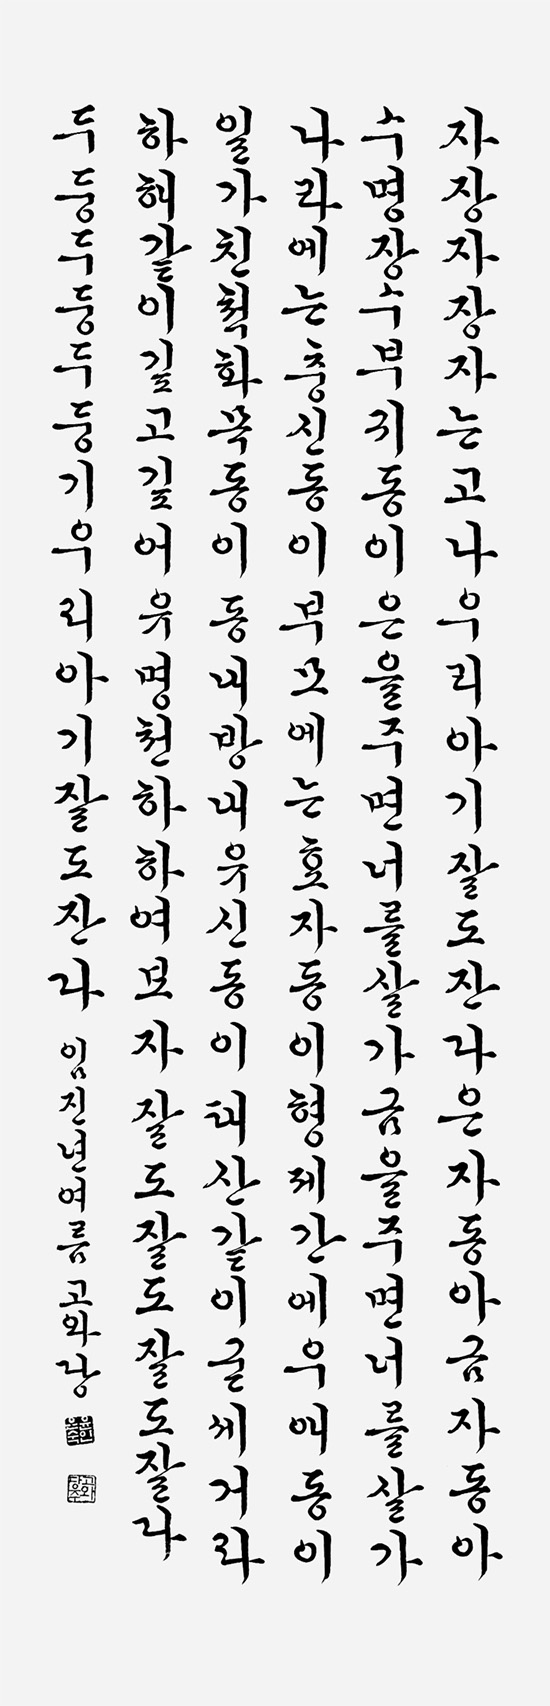 자장자장자는고나우리아기잘도잔다은자동아금자동아
수명장수부귀동이은을주면너를살가금을주면너를살가
나라에는충신동이부모에는효자동이형제간에우애동이
일가친척화목동이동내방내유신동이태산같이굳세거라
하해같이깊고깊어유명천하하여보자잘도잘도잘도잘다
두둥두둥두둥기우리아기잘도잔다
임진년여름고와랑